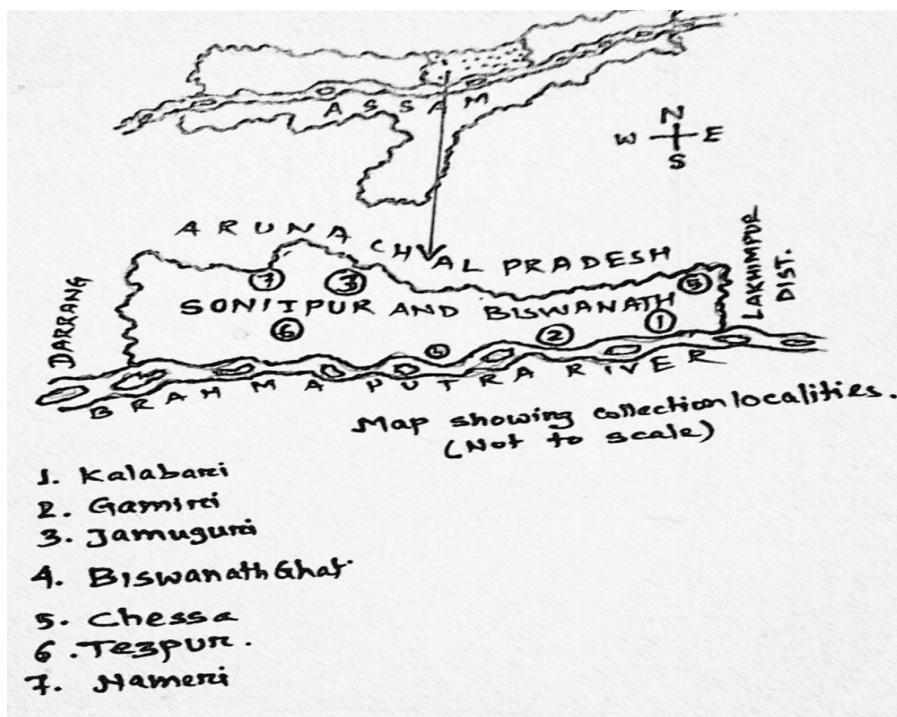 ASSAM
N
W E
S
ARUNACHAL PRADESH
LAKHIMPUR
DIST.
DARRANG
7 3 5
SONITPUR AND BISWANATH
6 4 2 1
BRAHMAPUTRA RIVER
Map showing collection localities.
(Not to scale)
1. Kalabari
2. Gamiri
3. Jamuguri
4. Biswanath Ghat
5. Chessa
6. Tezpur.
7. Nameri